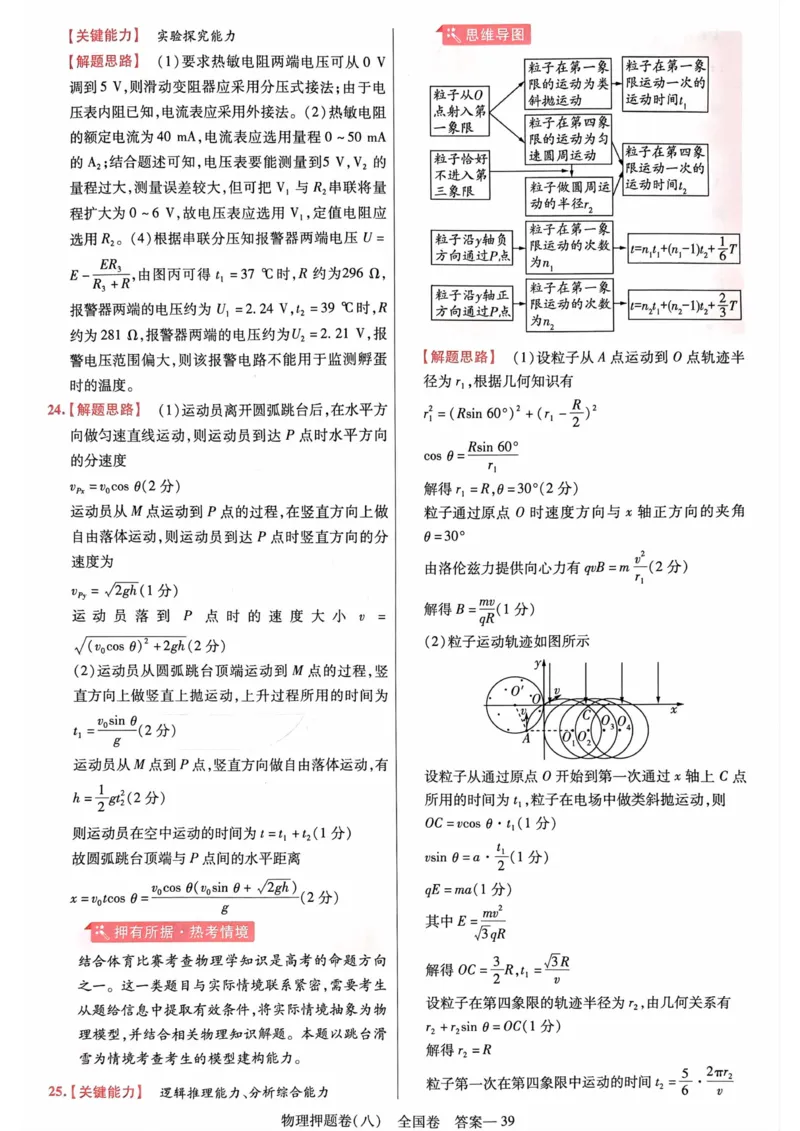 【关键能力】 实验探究能力
【解题思路】 (1)要求热敏电阻两端电压可从0 V
调到5 V,则滑动变阻器应采用分压式接法;由于电
压表内阻已知,电流表应采用外接法。(2)热敏电阻
的额定电流为40 mA,电流表应选用量程0~50 mA
的A₂;结合题述可知,电压表要能测量到5 V,V₂的
量程过大,测量误差较大,但可把V₁与R₂串联将量
程扩大为0~6 V,故电压表应选用V₁,定值电阻应
选用R₂。(4)根据串联分压知报警器两端电压U=
E-ER₃/(R₃+R),由图丙可得t₁=37 ℃时,R约为296 Ω,
报警器两端的电压约为U₁=2.24 V,t₂=39 ℃时,R
约为281 Ω,报警器两端的电压约为U₂=2.21 V,报
警电压范围偏大,则该报警电路不能用于监测孵蛋
时的温度。
24.【解题思路】 (1)运动员离开圆弧跳台后,在水平方
向做匀速直线运动,则运动员到达P点时水平方向
的分速度
v_Px=v₀cos θ(2分)
运动员从M点运动到P点的过程,在竖直方向上做
自由落体运动,则运动员到达P点时竖直方向的分
速度为
v_Py=√(2gh)(1分)
运动员落到P点时的速度大小v=
√((v₀cos θ)²+2gh)(2分)
(2)运动员从圆弧跳台顶端运动到M点的过程,竖
直方向上做竖直上抛运动,上升过程所用的时间为
t₁=v₀sin θ/g(2分)
运动员从M点到P点,竖直方向做自由落体运动,有
h=1/2gt₂²(2分)
则运动员在空中运动的时间为t=t₁+t₂(1分)
故圆弧跳台顶端与P点间的水平距离
x=v₀tcos θ=v₀cos θ(v₀sin θ+√(2gh))/g(2分)
押有所据·热考情境
结合体育比赛考查物理学知识是高考的命题方向
之一。这一类题目与实际情境联系紧密,需要考生
从题给信息中提取有效条件,将实际情境抽象为物
理模型,并结合相关物理知识解题。本题以跳台滑
雪为情境考查考生的模型建构能力。
25.【关键能力】 逻辑推理能力、分析综合能力
思维导图
粒子从O
点射入第
一象限
粒子在第一象
限的运动为类
斜抛运动
粒子在第一象
限运动一次的
运动时间t₁
粒子在第四象
限的运动为匀
速圆周运动
粒子恰好
不进入第
三象限
粒子做圆周运
动的半径r₂
粒子在第四象
限运动一次的
运动时间t₂
粒子沿y轴负
方向通过P点
粒子在第一象
限运动的次数
为n₁
t=n₁t₁+(n₁-1)t₂+1/6T
粒子沿y轴正
方向通过P点
粒子在第一象
限运动的次数
为n₂
t=n₂t₁+(n₂-1)t₂+2/3T
【解题思路】 (1)设粒子从A点运动到O点轨迹半
径为r₁,根据几何知识有
r₁²=(Rsin 60°)²+(r₁-R/2)²
cos θ=Rsin 60°/r₁
解得r₁=R,θ=30°(2分)
粒子通过原点O时速度方向与x轴正方向的夹角
θ=30°
由洛伦兹力提供向心力有qvB=mv²/r₁(2分)
解得B=mv/qR(1分)
(2)粒子运动轨迹如图所示
y
O'
O
v
x
v
C
O₃
O₄
A
O₁
O₂
设粒子从通过原点O开始到第一次通过x轴上C点
所用的时间为t₁,粒子在电场中做类斜抛运动,则
OC=vcos θ·t₁(1分)
vsin θ=a·t₁/2(1分)
qE=ma(1分)
其中E=mv²/√3qR
解得OC=3/2R,t₁=√3R/v
设粒子在第四象限的轨迹半径为r₂,由几何关系有
r₂+r₂sin θ=OC(1分)
解得r₂=R
粒子第一次在第四象限中运动的时间t₂=5/6·2πr₂/v
物理押题卷(八) 全国卷 答案—39